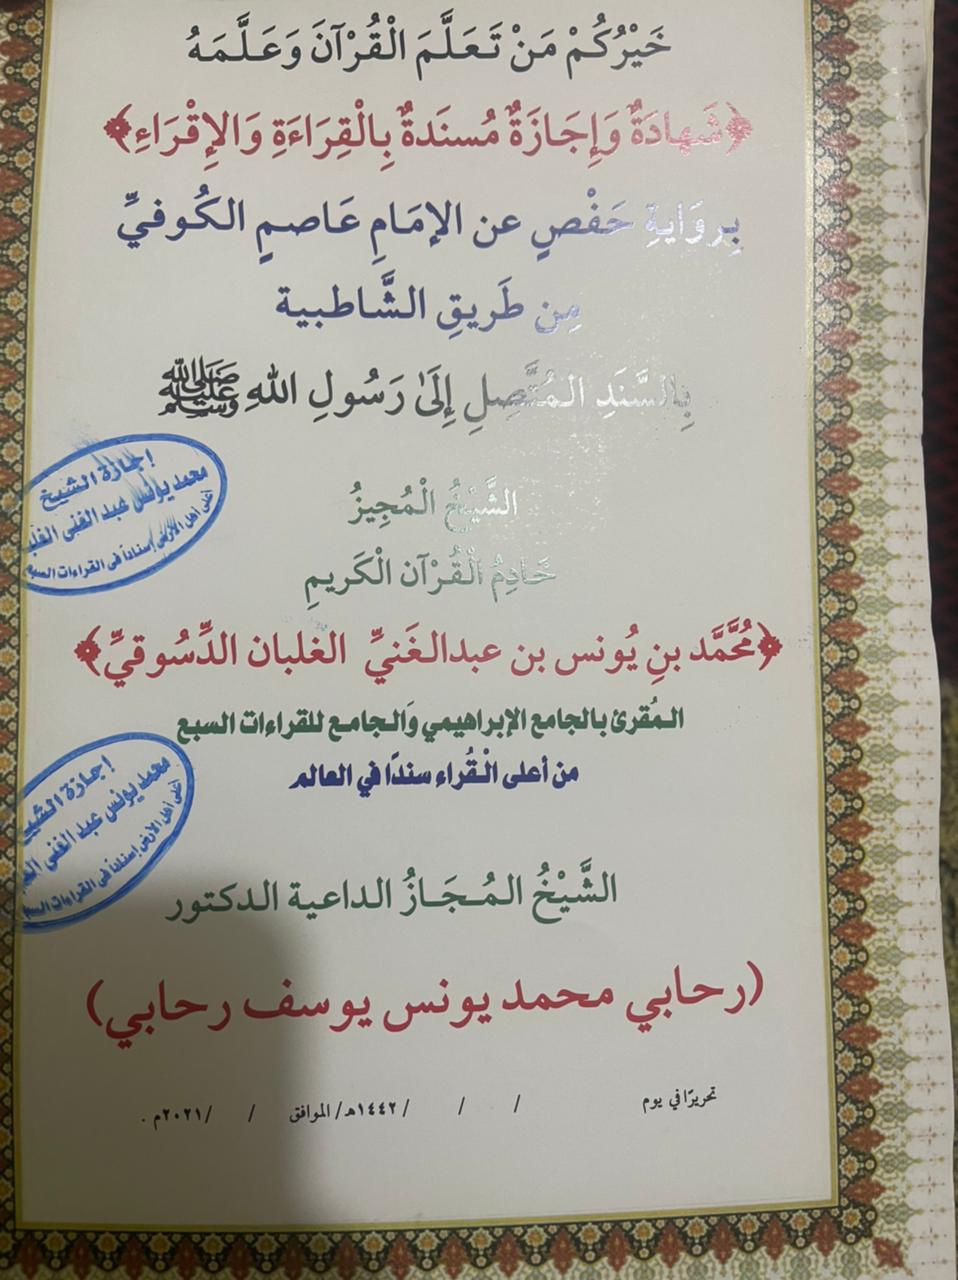 خَيْرُكُمْ مَنْ تَعَلَّمَ الْقُرْآنَ وَعَلَّمَهُ
﴿شَهَادَةٌ وَإِجَازَةٌ مُسنَدةٌ بِالْقِرَاءَةِ وَالإِقْرَاءِ﴾
بِروَايةِ حَفْصٍ عن الإمَامِ عَاصمٍ الكُوفيِّ
مِن طَريقِ الشَّاطبية
بِالسَّنَدِ المُتَّصِلِ إِلَىٰ رَسُولِ اللهِ ﷺ
الشَّيْخُ الْمُجِيزُ
خَادِمُ الْقُرْآن الْكَرِيمِ
﴿مُحَمَّد بنِ يُونس بن عبدالغَنيِّ الغلبان الدِّسُوقيِّ﴾
المُقرئ بالجامع الإبراهيمي وَالجامع للقراءات السبع
من أعلى الْقُراء سندًا في العالم
الشَّيْخُ المُجَازُ الداعية الدكتور
(رحابي محمد يونس يوسف رحابي)
تحريرًا في يوم / / /١٤٤٢هـ/ الموافق / /٢٠٢١م .
إجازة الشيخ
محمد يونس عبد الغنى
أعلى أهل الأرض إسناداً فى القراءات السبع
إجازة الشيخ
محمد يونس عبد الغنى
أعلى أهل الأرض إسناداً فى القراءات